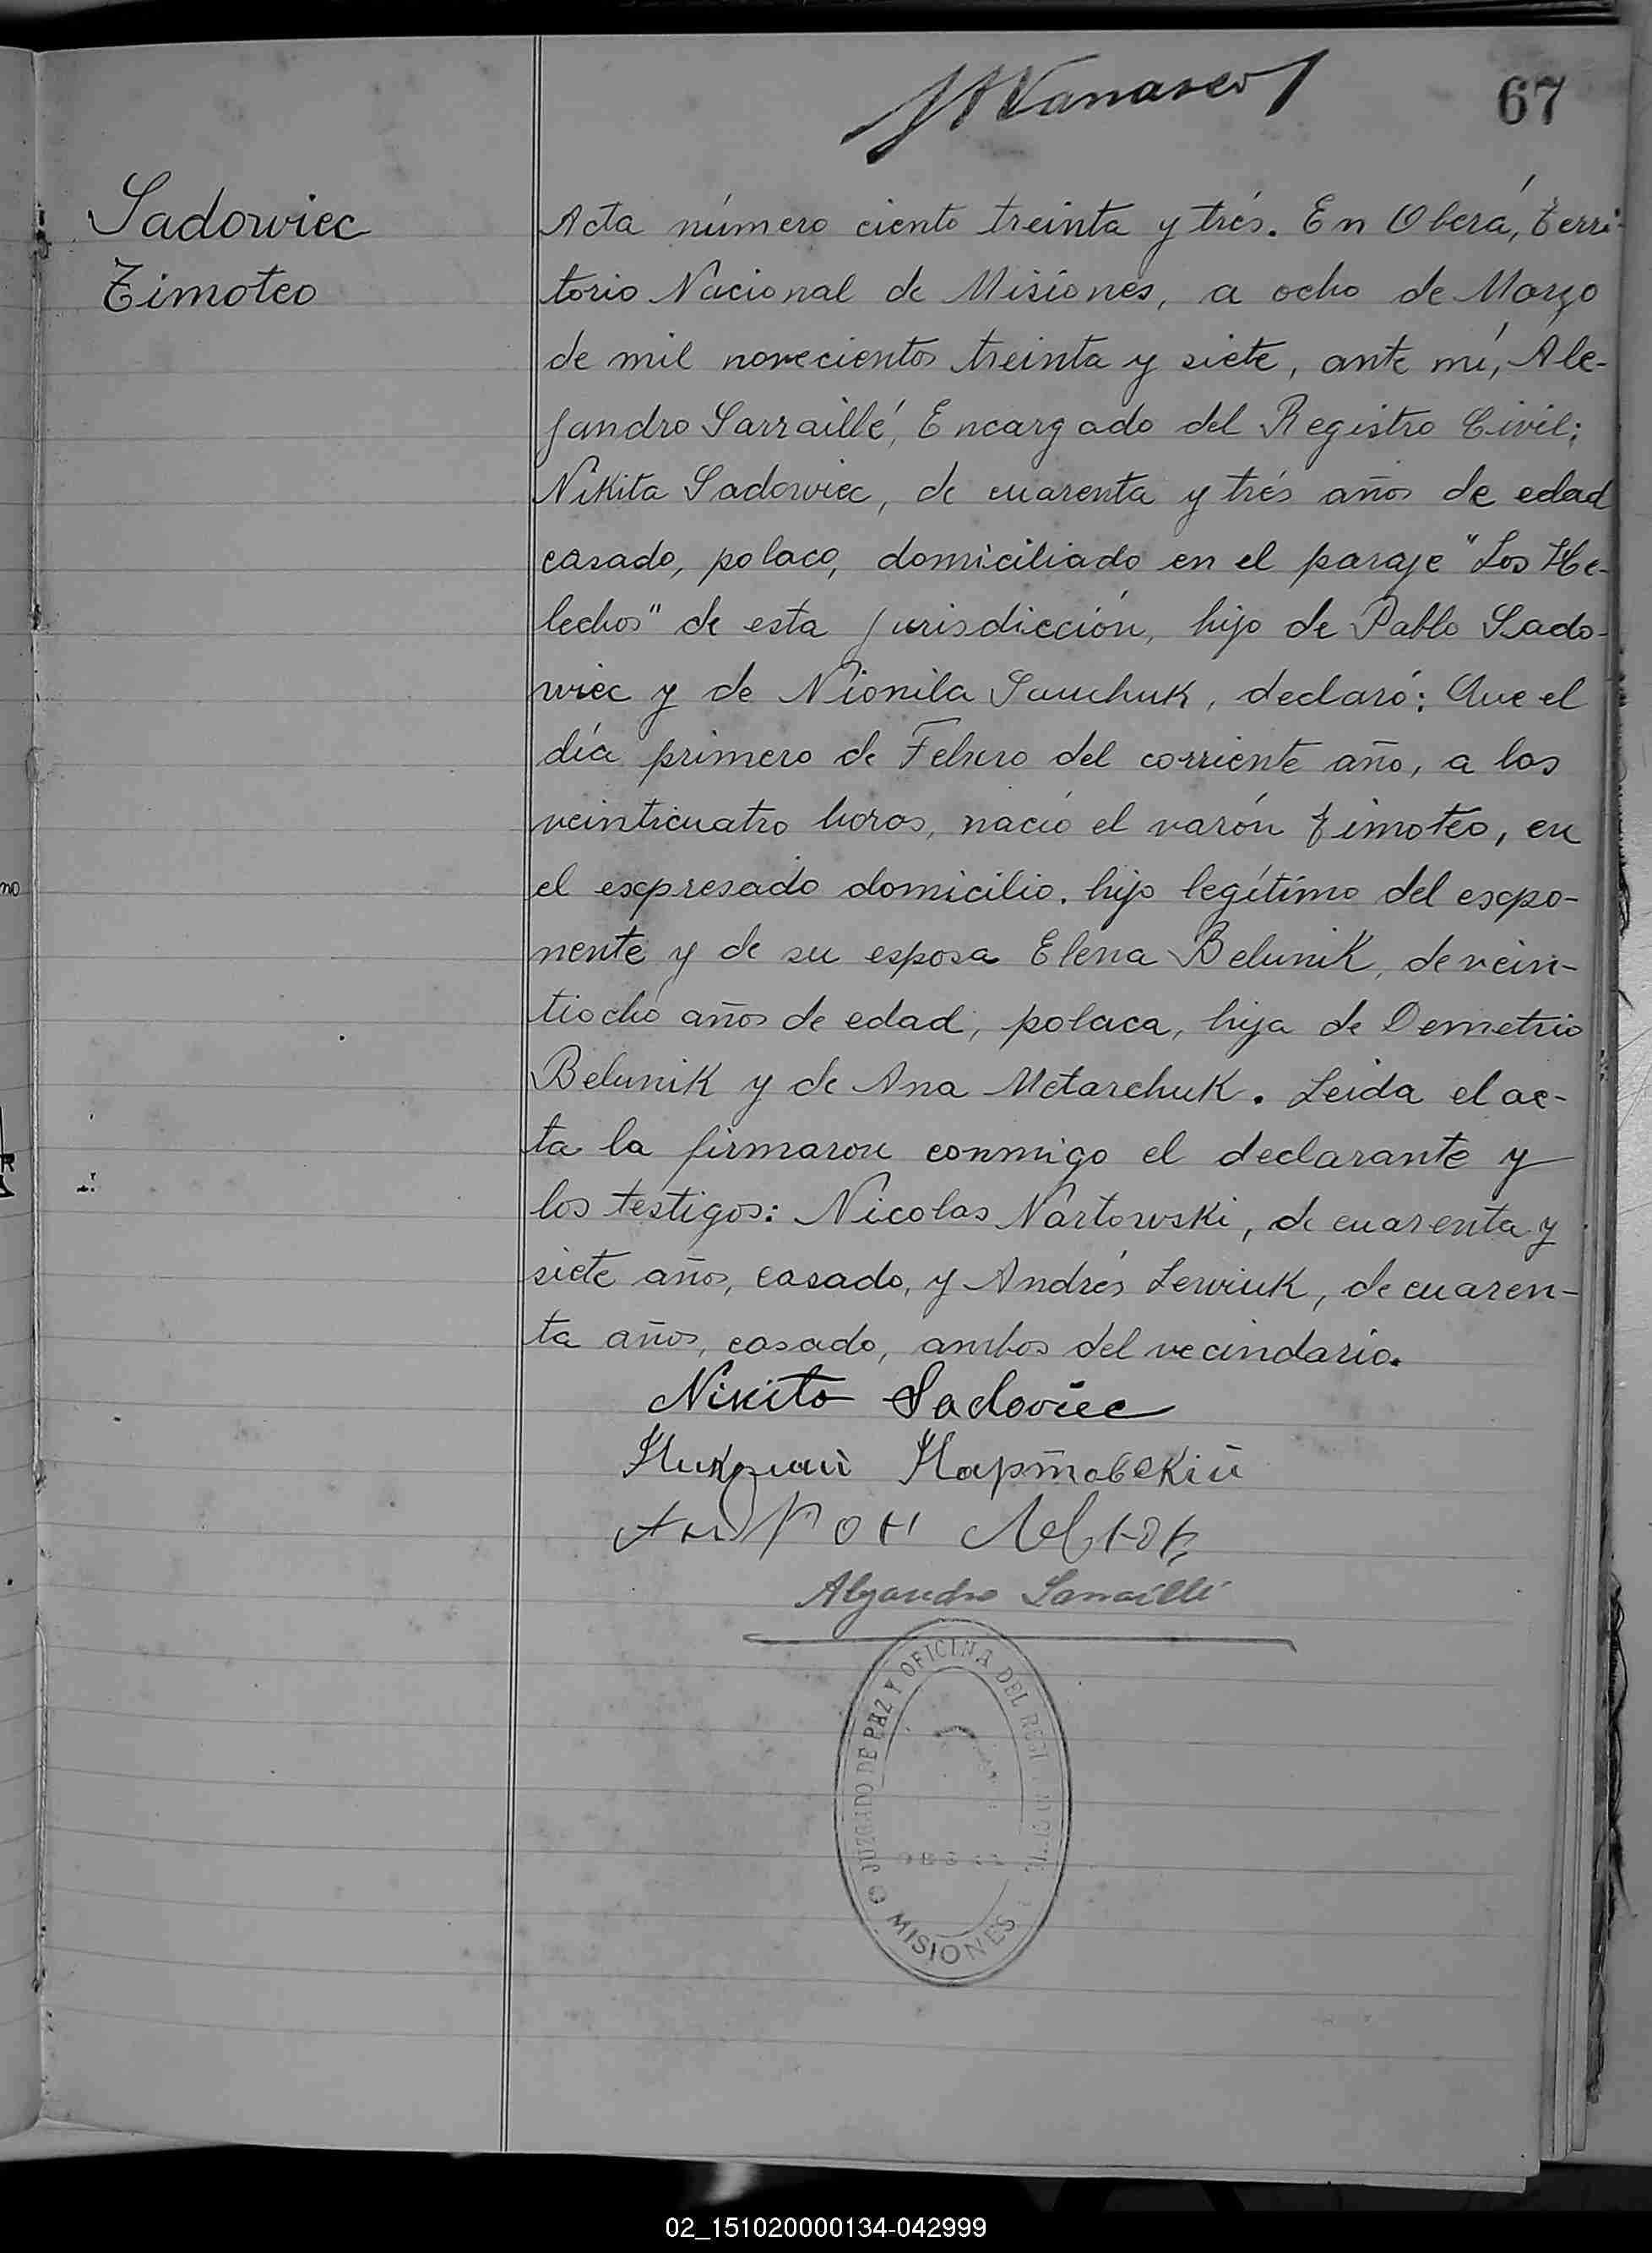 67
Sadowiec
Timoteo
Acta número ciento treinta y trés. En Oberá, Terri-
torio Nacional de Misiones, a ocho de Marzo
de mil novecientos treinta y siete, ante mí, Ale-
jandro Sarraillé, Encargado del Registro Civil;
Nikita Sadowiec, de cuarenta y trés años de edad
casado, polaco, domiciliado en el paraje "Los He-
lechos" de esta jurisdicción, hijo de Pablo Sado-
wiec y de Nionila Sauchuk, declaró: Que el
día primero de Febrero del corriente año, a las
veinticuatro horas, nació el varón Timoteo, en
el expresado domicilio. hijo legítimo del expo-
nente y de su esposa Elena Belunik, de vein-
tiocho años de edad, polaca, hija de Demetrio
Belunik y de Ana Metarchuk. Leida el ac-
ta la firmaron conmigo el declarante y
los testigos: Nicolas Nartowski, de cuarenta y
siete años, casado, y Andrés Lewiuk, de cuaren-
ta años, casado, ambos del vecindario.
Nikita Sadoviec
Николай Нартовскій
Alejandro Sarraillé
JUZGADO DE PAZ Y OFICINA DEL REG
MISIONES
02_151020000134-042999